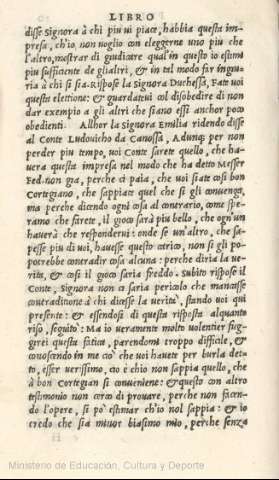 LIBRO
disse Signora à chi piu vi piace, habbia questa im-
presa, ch'io non voglio con eleggerne uno piu che
l'altro, mostrar di giudicare qual'in questo io estimi
piu sufficente de glialtri, & in tal modo far ingiu-
ria à chi si sia. Rispose la Signora Duchessa, Fate voi
questa elettione: & guardatevi col disobedire di non
dar exempio a gli altri che siano essi anchor poco
obedienti. Allhor la Signora Emilia ridendo disse
al Conte Ludovicho da Canossa, Adunque per non
perder piu tempo, voi Conte sarete quello, che ha-
uera questa impresa nel modo che ha detto Messer
Fed. non gia, perche ci paia, che voi siate cosi bon
Cortegiano, che sappiate quel che si gli convenga,
ma perche dicendo ogni cosa al contrario, come spe-
ramo che farete, il gioco sarà piu bello, che ogn'un
hauerà che responderui: onde se un'altro, che sa-
pesse piu di voi, hauesse questo carico, non se gli po-
potrebbe contradir cosa alcuna: perche diria la ve-
rità, & cosi il gioco saria freddo. Subito rispose il
Conte, Signora non ci saria pericolo che mancasse
contraditione à chi dicesse la verità, stando voi qui
presente: & essendosi di questa risposta alquanto
riso, seguitò: Ma io veramente molto volentier fug-
girei questa fatica, parendomi troppo difficile, &
conoscendo in me ciò che voi havete per burla det-
to, esser verissimo, cio è ch'io non sappia quello, che
à bon Cortegian si conviene: & questo con altro
testimonio non cerco di provare, perche non facen-
do l'opere, si pò estimar ch'io nol sappia: & io
credo che sia minor biasimo mio, perche senza
Ministerio de Educación, Cultura y Deporte